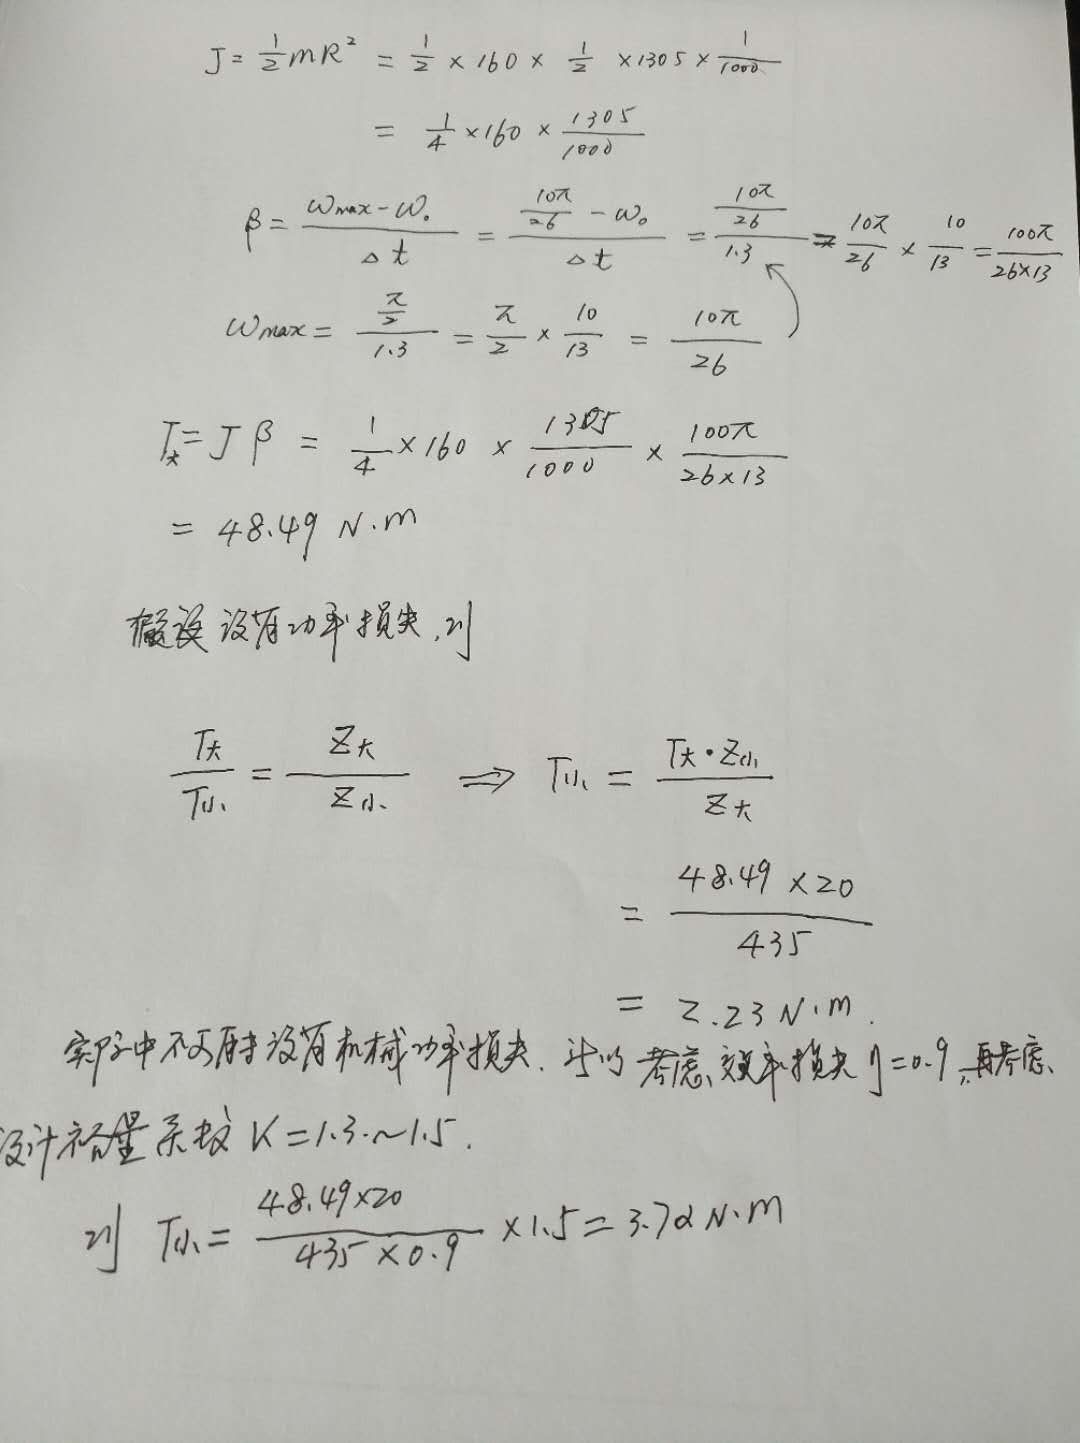 J = 1/2 mR² = 1/2 × 160 × 1/2 × 1305 × 1/1000
= 1/4 × 160 × 1305/1000
β = (ωmax - ω₀)/△t = (10π/26 - ω₀)/△t = (10π/26)/1.3 = 10π/26 × 10/13 = 100π/(26×13)
ωmax = (π/2)/1.3 = π/2 × 10/13 = 10π/26
T大 = Jβ = 1/4 × 160 × 1305/1000 × 100π/(26×13)
= 48.49 N·m
假设没有功率损失,则
T大/T小 = Z大/Z小 ⇒ T小 = T大·Z小/Z大
= 48.49×20/435
= 2.23 N·m.
实际中不可能没有机械功率损失. 所以考虑效率损失 η=0.9, 再考虑、
设计裕量系数 K=1.3~1.5.
则 T小 = 48.49×20/(435×0.9) ×1.5 = 3.72 N·m